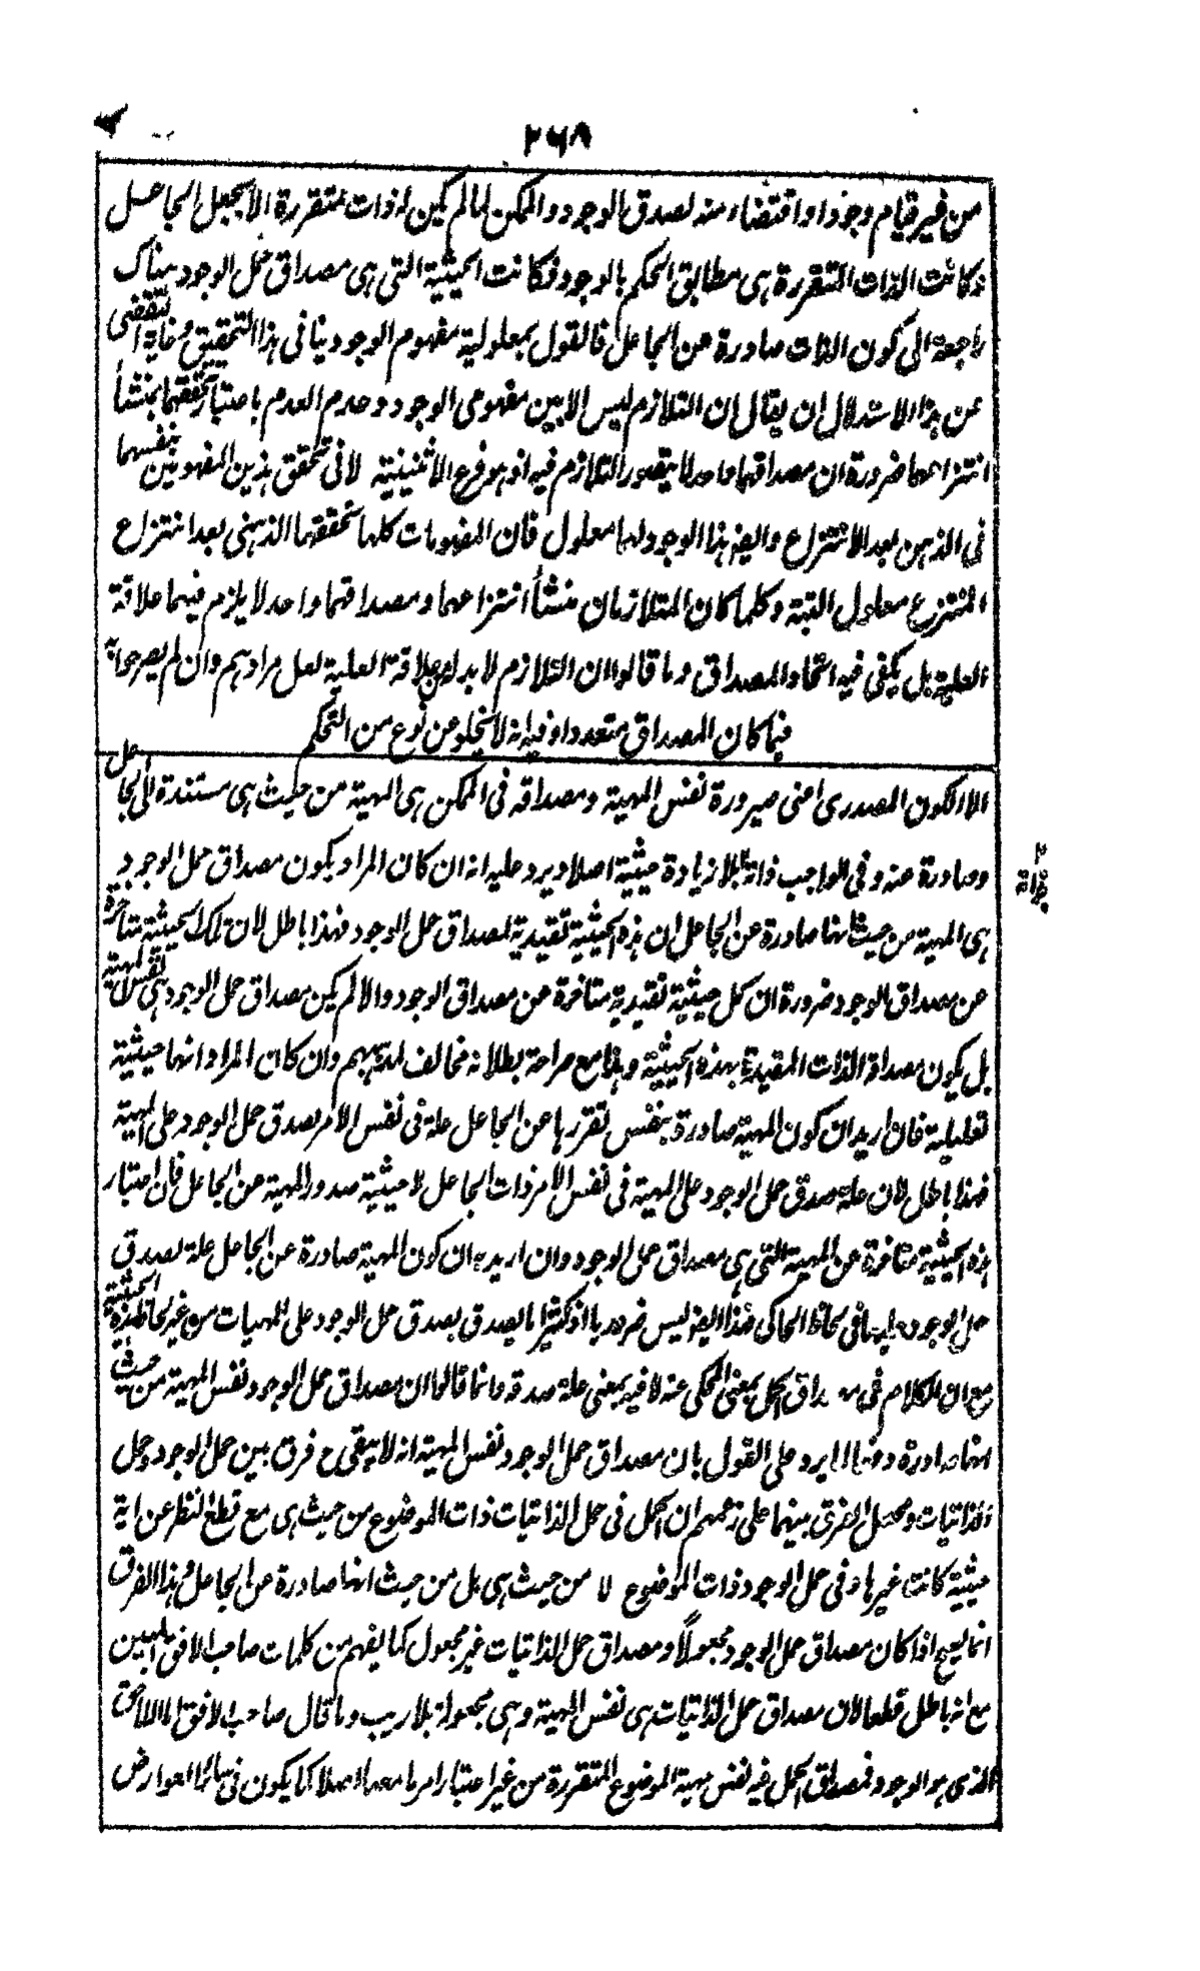 ٢٦٨
من غير قيام وجود او اقتضاء منه لصدق الوجود والممكن لما لم يكن له ذات متقررة الا بجعل الجاعل
وكانت الذات المتقررة هي مطابق الحكم بالوجود فكانت الحيثية التي هي مصداق حمل الوجود هناك
راجعة الى كون الذات صادرة عن الجاعل فالقول بمعلولية مفهوم الوجود ينافي هذا التحقيق وغاية التفصي
عن هذا الاستدلال ان يقال ان التلازم ليس الا بين مفهومي الوجود وعدم العدم باعتبار تحققهما بمنشأ
انتزاعهما ضرورة ان مصداقهما واحد لا يتصور التلازم فيه اذ هو فرع الاثنينية لا في تحقق هذين المفهومين بنفسهما
في الذهن بعد الانتزاع وايضا هذا الوجود لهما معلول فان المفهومات كلها تحققها الذهني بعد انتزاع
المنتزع معلول البتة وكلما كان المتلازمان منشأ انتزاعهما ومصداقهما واحد لا يلزم فيهما علاقة
العلية بل يكفي فيه اتحاد المصداق وما قالوا ان التلازم لا بد له من علاقة العلية لعل مرادهم وان لم يصرحوا به
فيما كان المصداق متعددا وفيه انه لا يخلو عن نوع من التحكم
الا الكون المصدري اعني صيرورة نفس المهية ومصداقه في الممكن هي المهية من حيث هي مستندة الى الجاعل
وصادرة عنه وفي الواجب ذاته بلا زيادة حيثية اصلا ويرد عليه انه ان كان المراد بكون مصداق حمل الوجود
هي المهية من حيث انها صادرة عن الجاعل ان هذه الحيثية تقييدية لمصداق حمل الوجود فهذا باطل لان تلك الحيثية متاخرة
عن مصداق الوجود ضرورة ان كل حيثية تقييدية متاخرة عن مصداق الوجود والا لم يكن مصداق حمل الوجود هي نفس المهية
بل يكون مصداقه الذات المقيدة بهذه الحيثية وهذا مع صراحة بطلانه مخالف لمذهبهم وان كان المراد انها حيثية
تعليلية فان اريد ان كون المهية صادرة بنفس تقررها عن الجاعل علة في نفس الامر لصدق حمل الوجود على المهية
فهذا باطل لان علة صدق حمل الوجود على المهية في نفس الامر ذات الجاعل لا حيثية صدور المهية عن الجاعل فان اعتبار
هذه الحيثية متاخرة عن المهية التي هي مصداق حمل الوجود وان اريد به ان كون المهية صادرة عن الجاعل علة لصدق
حمل الوجود عليها في لحاظ الحاكي فهذا ايضا ليس ضروريا اذ كثيرا ما يصدق بصدق حمل الوجود على المهيات من غير لحاظ هذه الحيثية
مع ان الكلام في مصداق الحمل بمعنى المحكي عنه لا فيه بمعنى علة صدقه وانما قالوا ان مصداق حمل الوجود نفس المهية من حيث
انها صادرة دفعا لما يرد على القول بان مصداق حمل الوجود نفس المهية انه لا يبقى ح فرق بين حمل الوجود وحمل
الذاتيات ومحصل الفرق بينهما على زعمهم ان الحمل في حمل الذاتيات ذات الموضوع من حيث هي مع قطع النظر عن اية
حيثية كانت غيرها وفي حمل الوجود ذات الموضوع لا من حيث هي بل من حيث انها صادرة عن الجاعل وهذا الفرق
انما يصح اذا كان مصداق حمل الوجود مجعولاً ومصداق حمل الذاتيات غير مجعول كما يفهم من كلمات صاحب الافق المبين
مع انه باطل قطعا لان مصداق حمل الذاتيات هي نفس المهية وهي مجعولة بلا ريب وما قال صاحب الافق اما اللاحق
الذي هو الوجود فمصداق الحمل فيه نفس مهية الموضوع المتقررة من غير اعتبار امر ما معها اصلا كما يكون في سائر العوارض